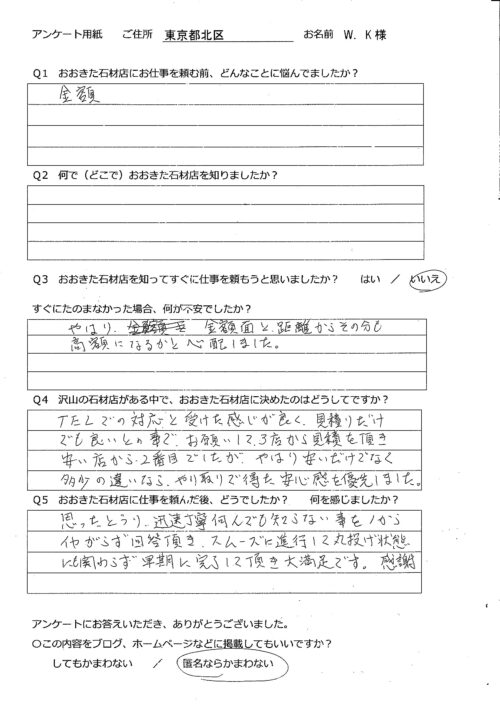 アンケート用紙 ご住所 東京都北区 お名前 W. K様
Q1 おおきた石材店にお仕事を頼む前、どんなことに悩んでましたか?
金額
Q2 何で(どこで)おおきた石材店を知りましたか?
Q3 おおきた石材店を知ってすぐに仕事を頼もうと思いましたか? はい / いいえ
すぐにたのまなかった場合、何が不安でしたか?
やはり、金額面と、距離からその分も
高額になるかと心配しました。
Q4 沢山の石材店がある中で、おおきた石材店に決めたのはどうしてですか?
TELでの対応と受けた感じが良く、見積りだけ
でも良いとの事で、お願いして、3店から見積を頂き
安い店から、2番目でしたが、やはり安いだけでなく
多少の違いなら、やり取りで得た安心感を優先しました。
Q5 おおきた石材店に仕事を頼んだ後、どうでしたか? 何を感じましたか?
思ったとうり、迅速丁寧何んでも知らない事を1から
イヤがらず回答頂き、スムーズに進行して丸投げ状態
にも関わらず早期に完了して頂き大満足です。感謝
アンケートにお答えいただき、ありがとうございました。
〇この内容をブログ、ホームページなどに掲載してもいいですか?
してもかまわない / 匿名ならかまわない